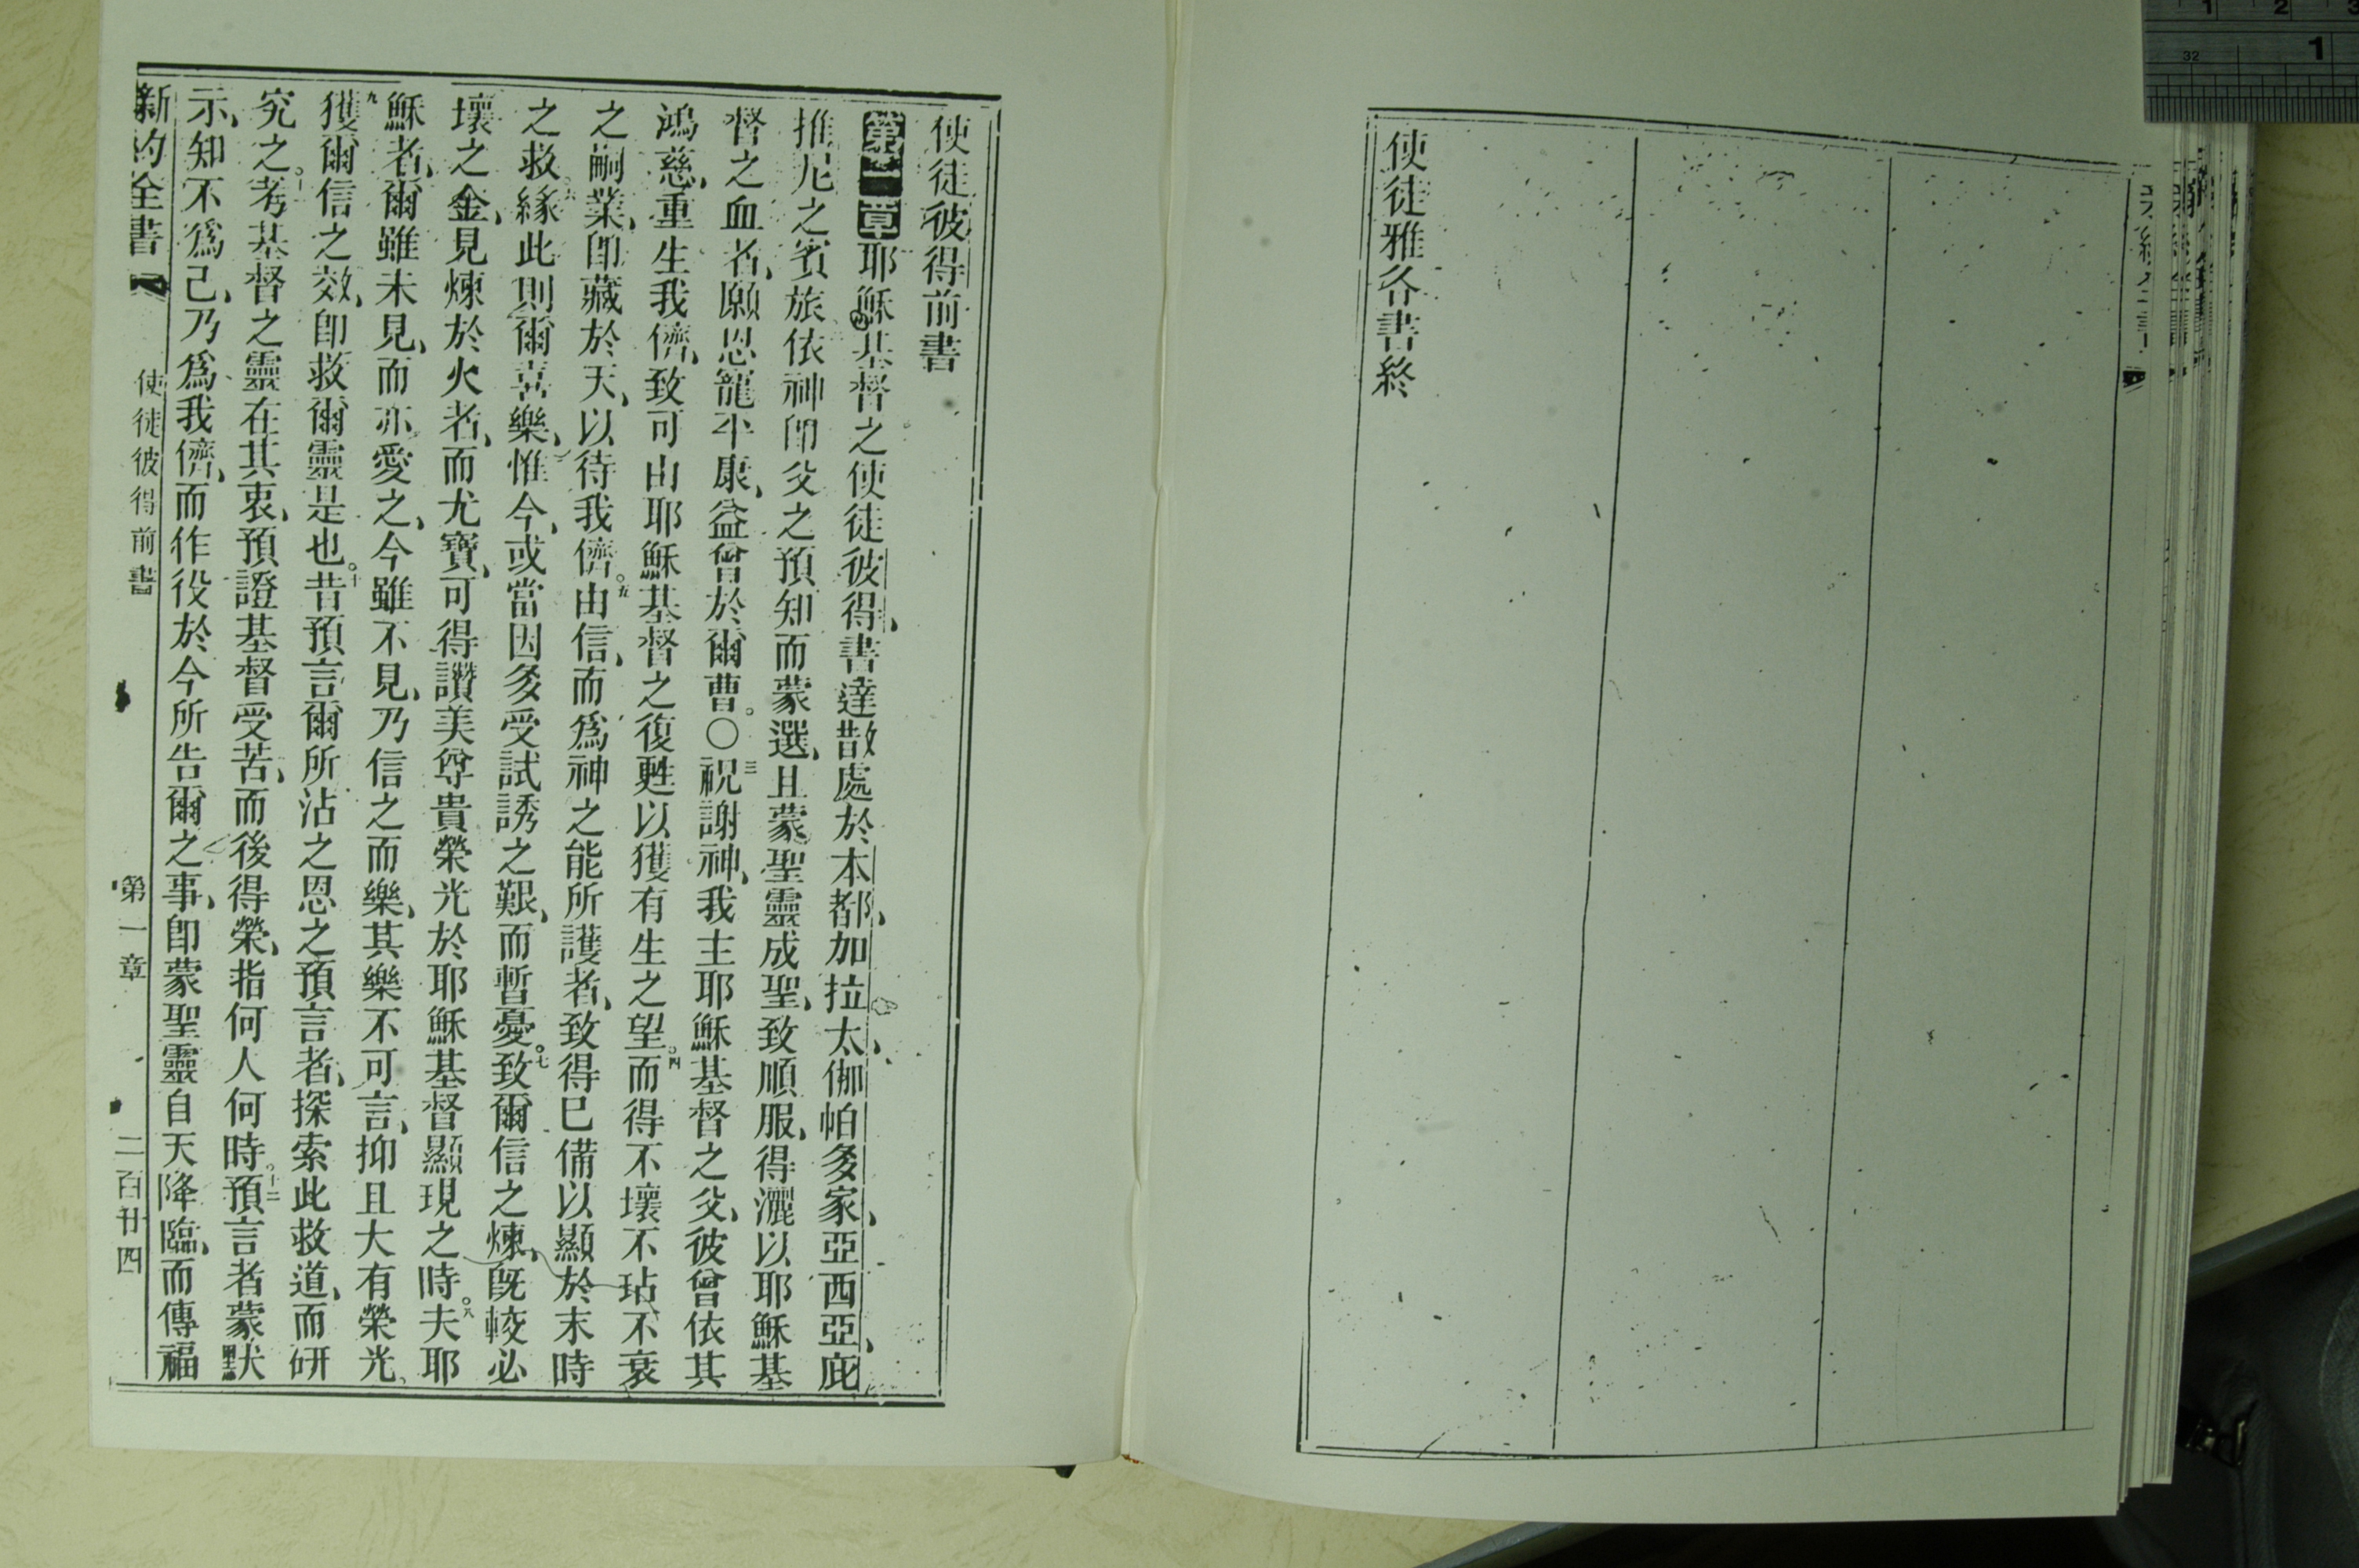 使徒雅各書終
使徒彼得前書
第一章耶穌基督之使徒彼得、書達散處於本都、加拉太、伽帕多家、亞西亞、庇
推尼之賓旅、依神卽父之預知而蒙選、且蒙聖靈成聖、致順服、得灑以耶穌基
督之血者、願恩寵平康、益曾於爾曹。〇三祝謝神、我主耶穌基督之父、彼曾依其
鴻慈、重生我儕、致可由耶穌基督之復甦以獲有生之望。四而得不壞不玷不衰
之嗣業、卽藏於天、以待我儕。五由信、而爲神之能所護者、致得已備以顯於末時
之救。六緣此則爾喜樂、惟今、或當因多受試誘之艱、而暫憂。七致爾信之煉、旣較必
壞之金、見煉於火者、而尤寶、可得讚美尊貴榮光於耶穌基督顯現之時。八夫耶
穌者、爾雖未見、而亦愛之、今雖不見、乃信之而樂、其樂不可言、抑且大有榮光、
九獲爾信之效、卽救爾靈是也。十昔預言爾所沾之恩之預言者、探索此救道、而研
究之。十一考基督之靈在其衷、預證基督受苦、而後得榮、指何人何時。十二預言者蒙
示、知不爲己、乃爲我儕、而作役於今所告爾之事、卽蒙聖靈自天降臨、而傳福
新約全書 使徒彼得前書 第一章 二百廿四